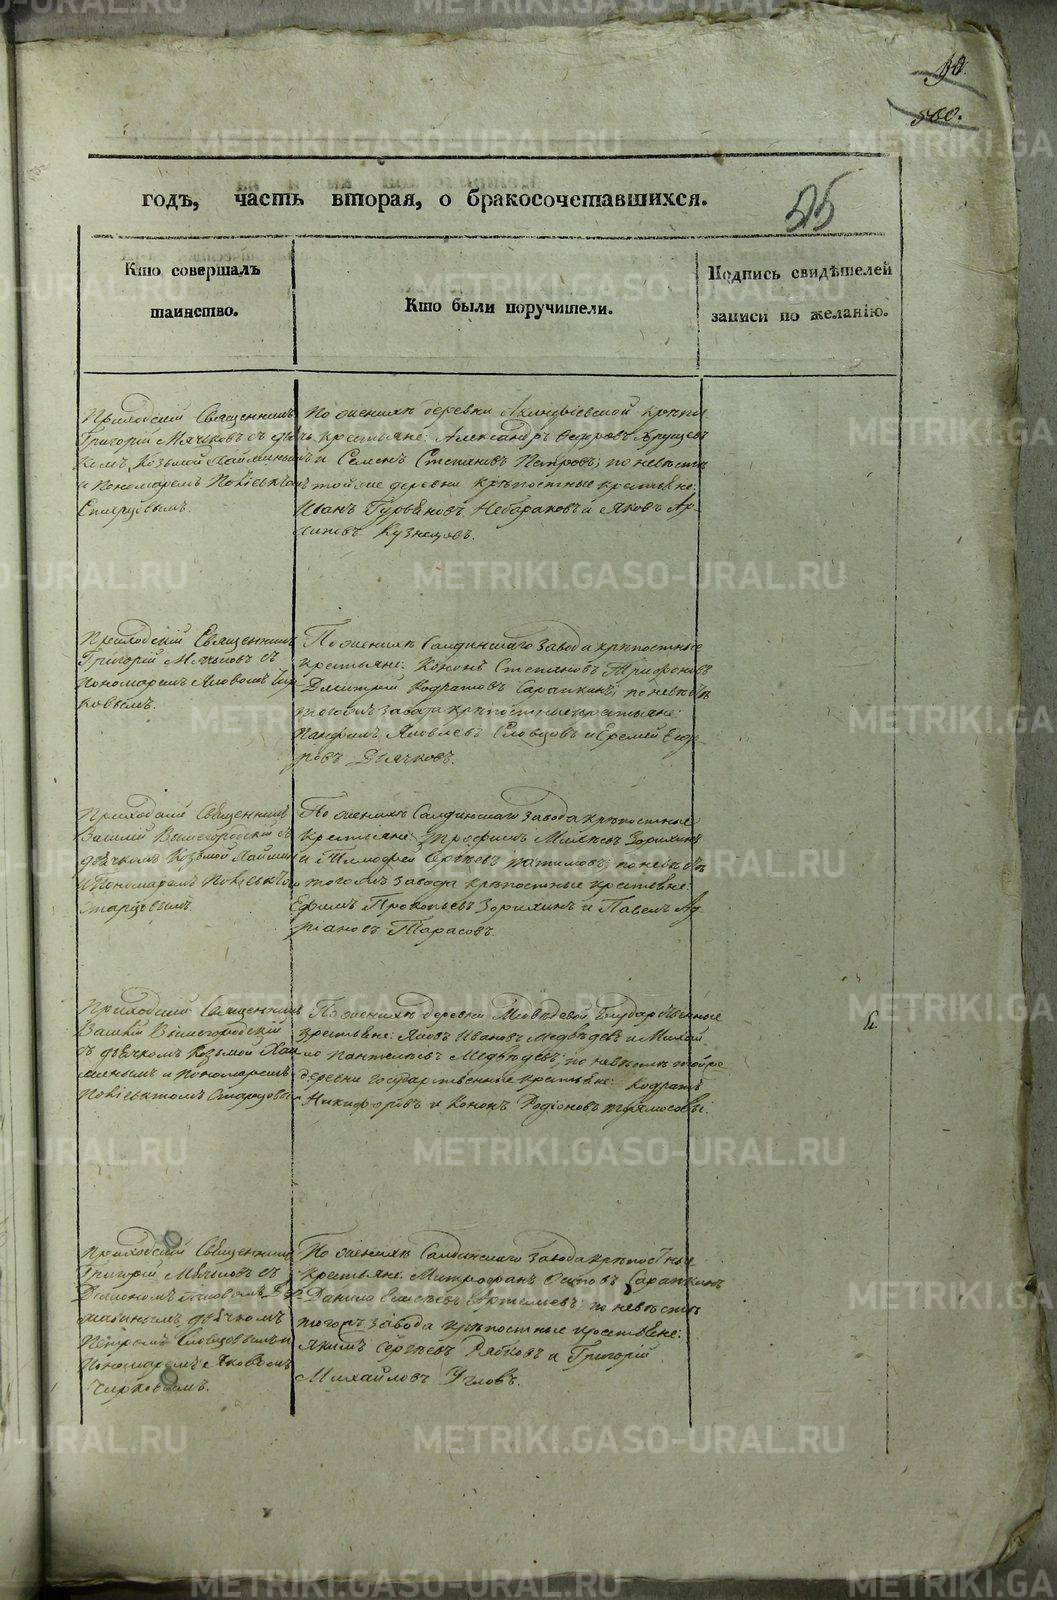 50.
500.
годъ, часть вторая, о бракосочетавшихся.
55
Кто совершалъ таинство.
Кто были поручители.
Подпись свидѣтелей записи по желанію.
Приходскій Священникъ
Григорій Мячковъ съ дьяч
комъ Козьмой
и Пономаремъ
По женихѣ деревни Акинфіевской крѣпос
крестьяне: Александръ Ѳедоровъ
и Семенъ Степановъ Петровъ; по невѣстѣ
той же деревни крѣпостные крестьяне:
Иванъ Гурьяновъ и Яковъ Ар
Кузнецовъ.
Приходскій Священникъ
Григорій Мячковъ съ
пономаремъ Яковомъ Чир
ковымъ.
По женихѣ Салдинскаго завода крѣпостные
крестьяне: Кононъ Степановъ Трифоновъ
Дмитрій Кодратовъ Сарапкинъ; по невѣстѣ
тогожъ завода крѣпостные крестьяне:
Панфилъ Яковлевъ Словцовъ и Еремей Его
ровъ Дьячковъ.
Приходскій Священникъ
Василій Вышегородскій съ
дьячкомъ Козьмой
и Пономаремъ
Старцовымъ.
По женихѣ Салдинскаго завода крѣпостные
крестьяне: Трофимъ Зорихинъ
и Тимофей Сергѣевъ по невѣстѣ
тогожъ завода крѣпостные крестьяне:
Ефимъ Прокопьевъ Зорихинъ и Павелъ Ад
ріановъ Тарасовъ.
Приходскій Священникъ
Василій Вышегородскій
съ дьячкомъ Козьмой
и Пономаремъ
Старцовы
По женихѣ деревни Медвѣдевой Государственные
крестьяне: Яковъ Ивановъ Медвѣдевъ и Михай
ло Пантелѣевъ Медвѣдевъ; по невѣстѣ той же
деревни государственные крестьяне: Кодратъ
Никифоровъ и Кононъ Родіоновъ
Приходскій Священникъ
Григорій Мячковъ съ
Діакономъ
дьячкомъ
Петромъ Словцовымъ и
Пономаремъ Яковомъ
Чирковымъ.
По женихѣ Салдинскаго завода крѣпостные
крестьяне: Митрофанъ Осиповъ Сарапкинъ
Данило по невѣстѣ
тогожъ завода крѣпостные крестьяне:
Якимъ Сергѣевъ Рябковъ и Григорій
Михайловъ Угловъ.
METRIKI.GASO-URAL.RU